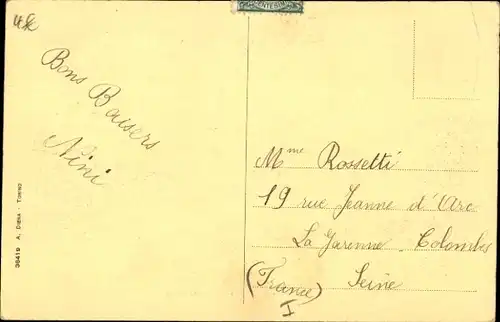 CENTESIMI
Bons Baisers
Nini
Mme Rossetti
19 rue Jeanne d'Arc
La Garenne-Colombes
(France) Seine
I
36419 A. DIENA - TORINO